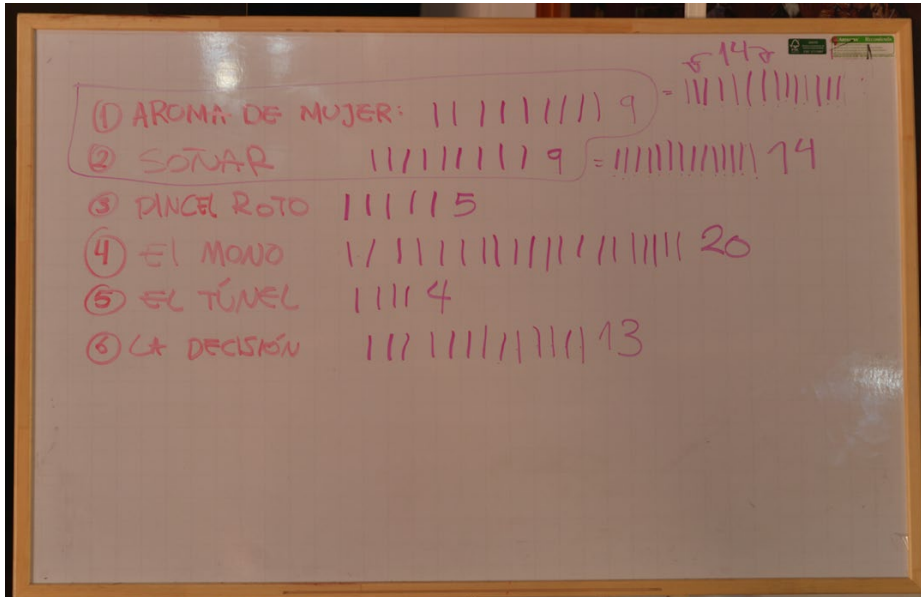 14
① AROMA DE MUJER: ||||||||| 9 = ||||||||||||||
② SOÑAR ||||||||| 9 = |||||||||||||| 14
③ PINCEL ROTO |||||| 5
④ El MONO |||||||||||||||||||| 20
⑤ EL TÚNEL |||| 4
⑥ LA DECISIÓN ||||||||||||| 13